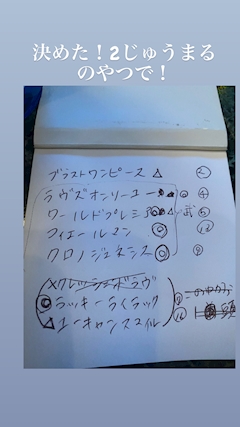 決めた！2じゅうまる
のやつで！
ブラストワンピース △ ②
ラヴズオンリーユー ④
ワールドプレミア ⑤
フィエールマン ◎ ⑫
クロノジェネシス ◎ ⑨
×クレッシェンドラヴ
◎ラッキーライラック
△ユーキャンスマイル ⑯